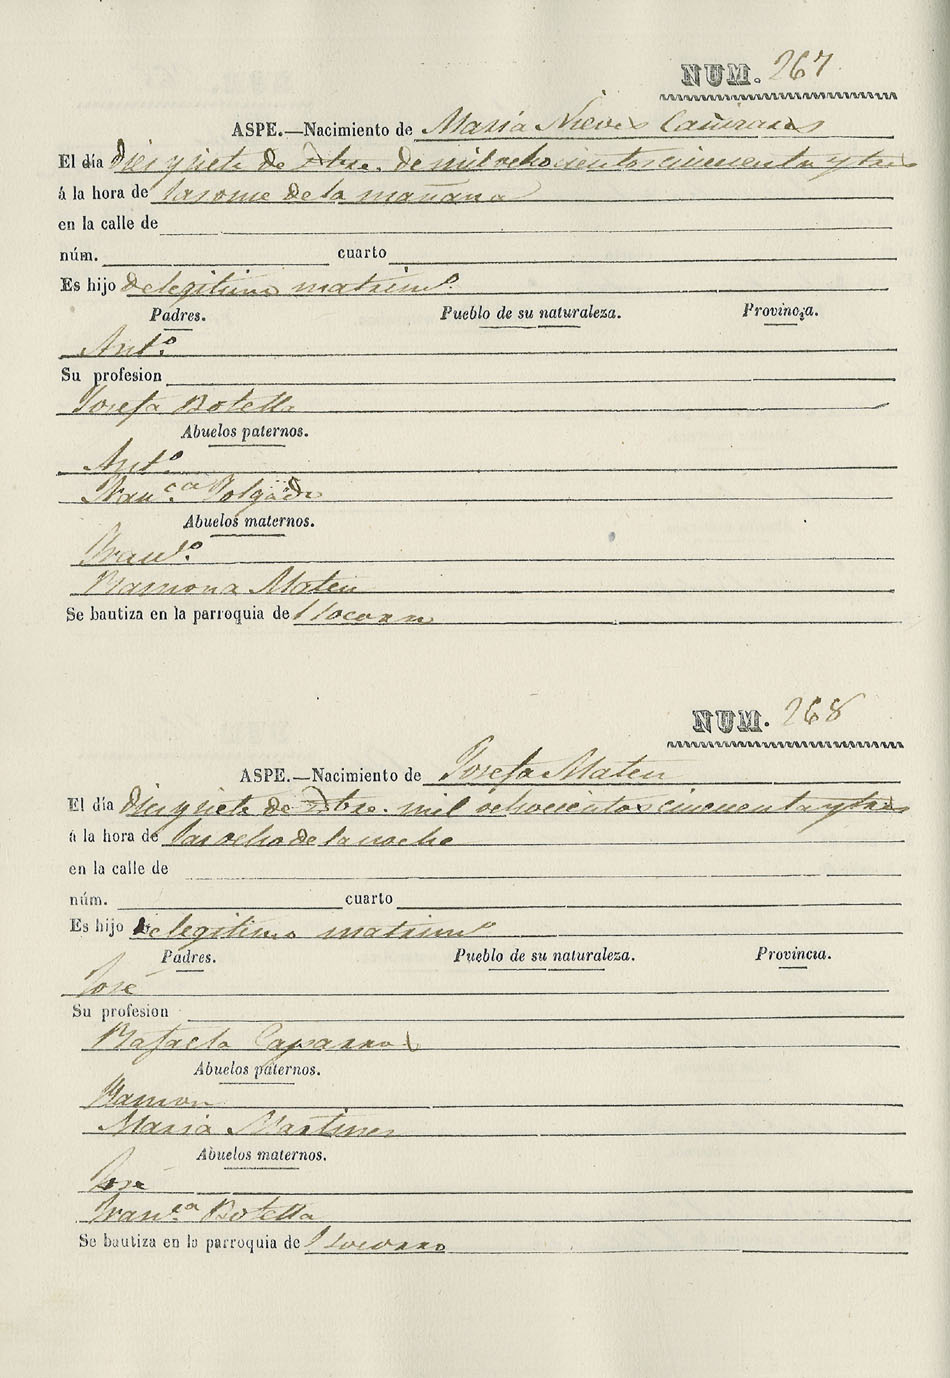 NUM. 267
ASPE.—Nacimiento de Maria Nieves Cañizares
El día diez y siete de 7bre. de mil ochocientos cincuenta y tres
á la hora de las once de la mañana
en la calle de
núm. cuarto
Es hijo de legitimo matrimº.
Padres. Pueblo de su naturaleza. Provincia.
Antº.
Su profesion
Josefa Botella
Abuelos paternos.
Antº.
Franca.
Abuelos maternos.
Franco.
Ramona Mateu
Se bautiza en la parroquia de Socorro
NUM. 268
ASPE.—Nacimiento de Josefa Mateu
El día diez y siete de 7bre. mil ochocientos cincuenta y tres
á la hora de las ocho de la noche
en la calle de
núm. cuarto
Es hijo de legitimo matrimº
Padres. Pueblo de su naturaleza. Provincia.
José
Su profesion
Rafaela Caparros
Abuelos paternos.
Ramon
Maria Martinez
Abuelos maternos.
José
Franca. Botella
Se bautiza en la parroquia de Socorro